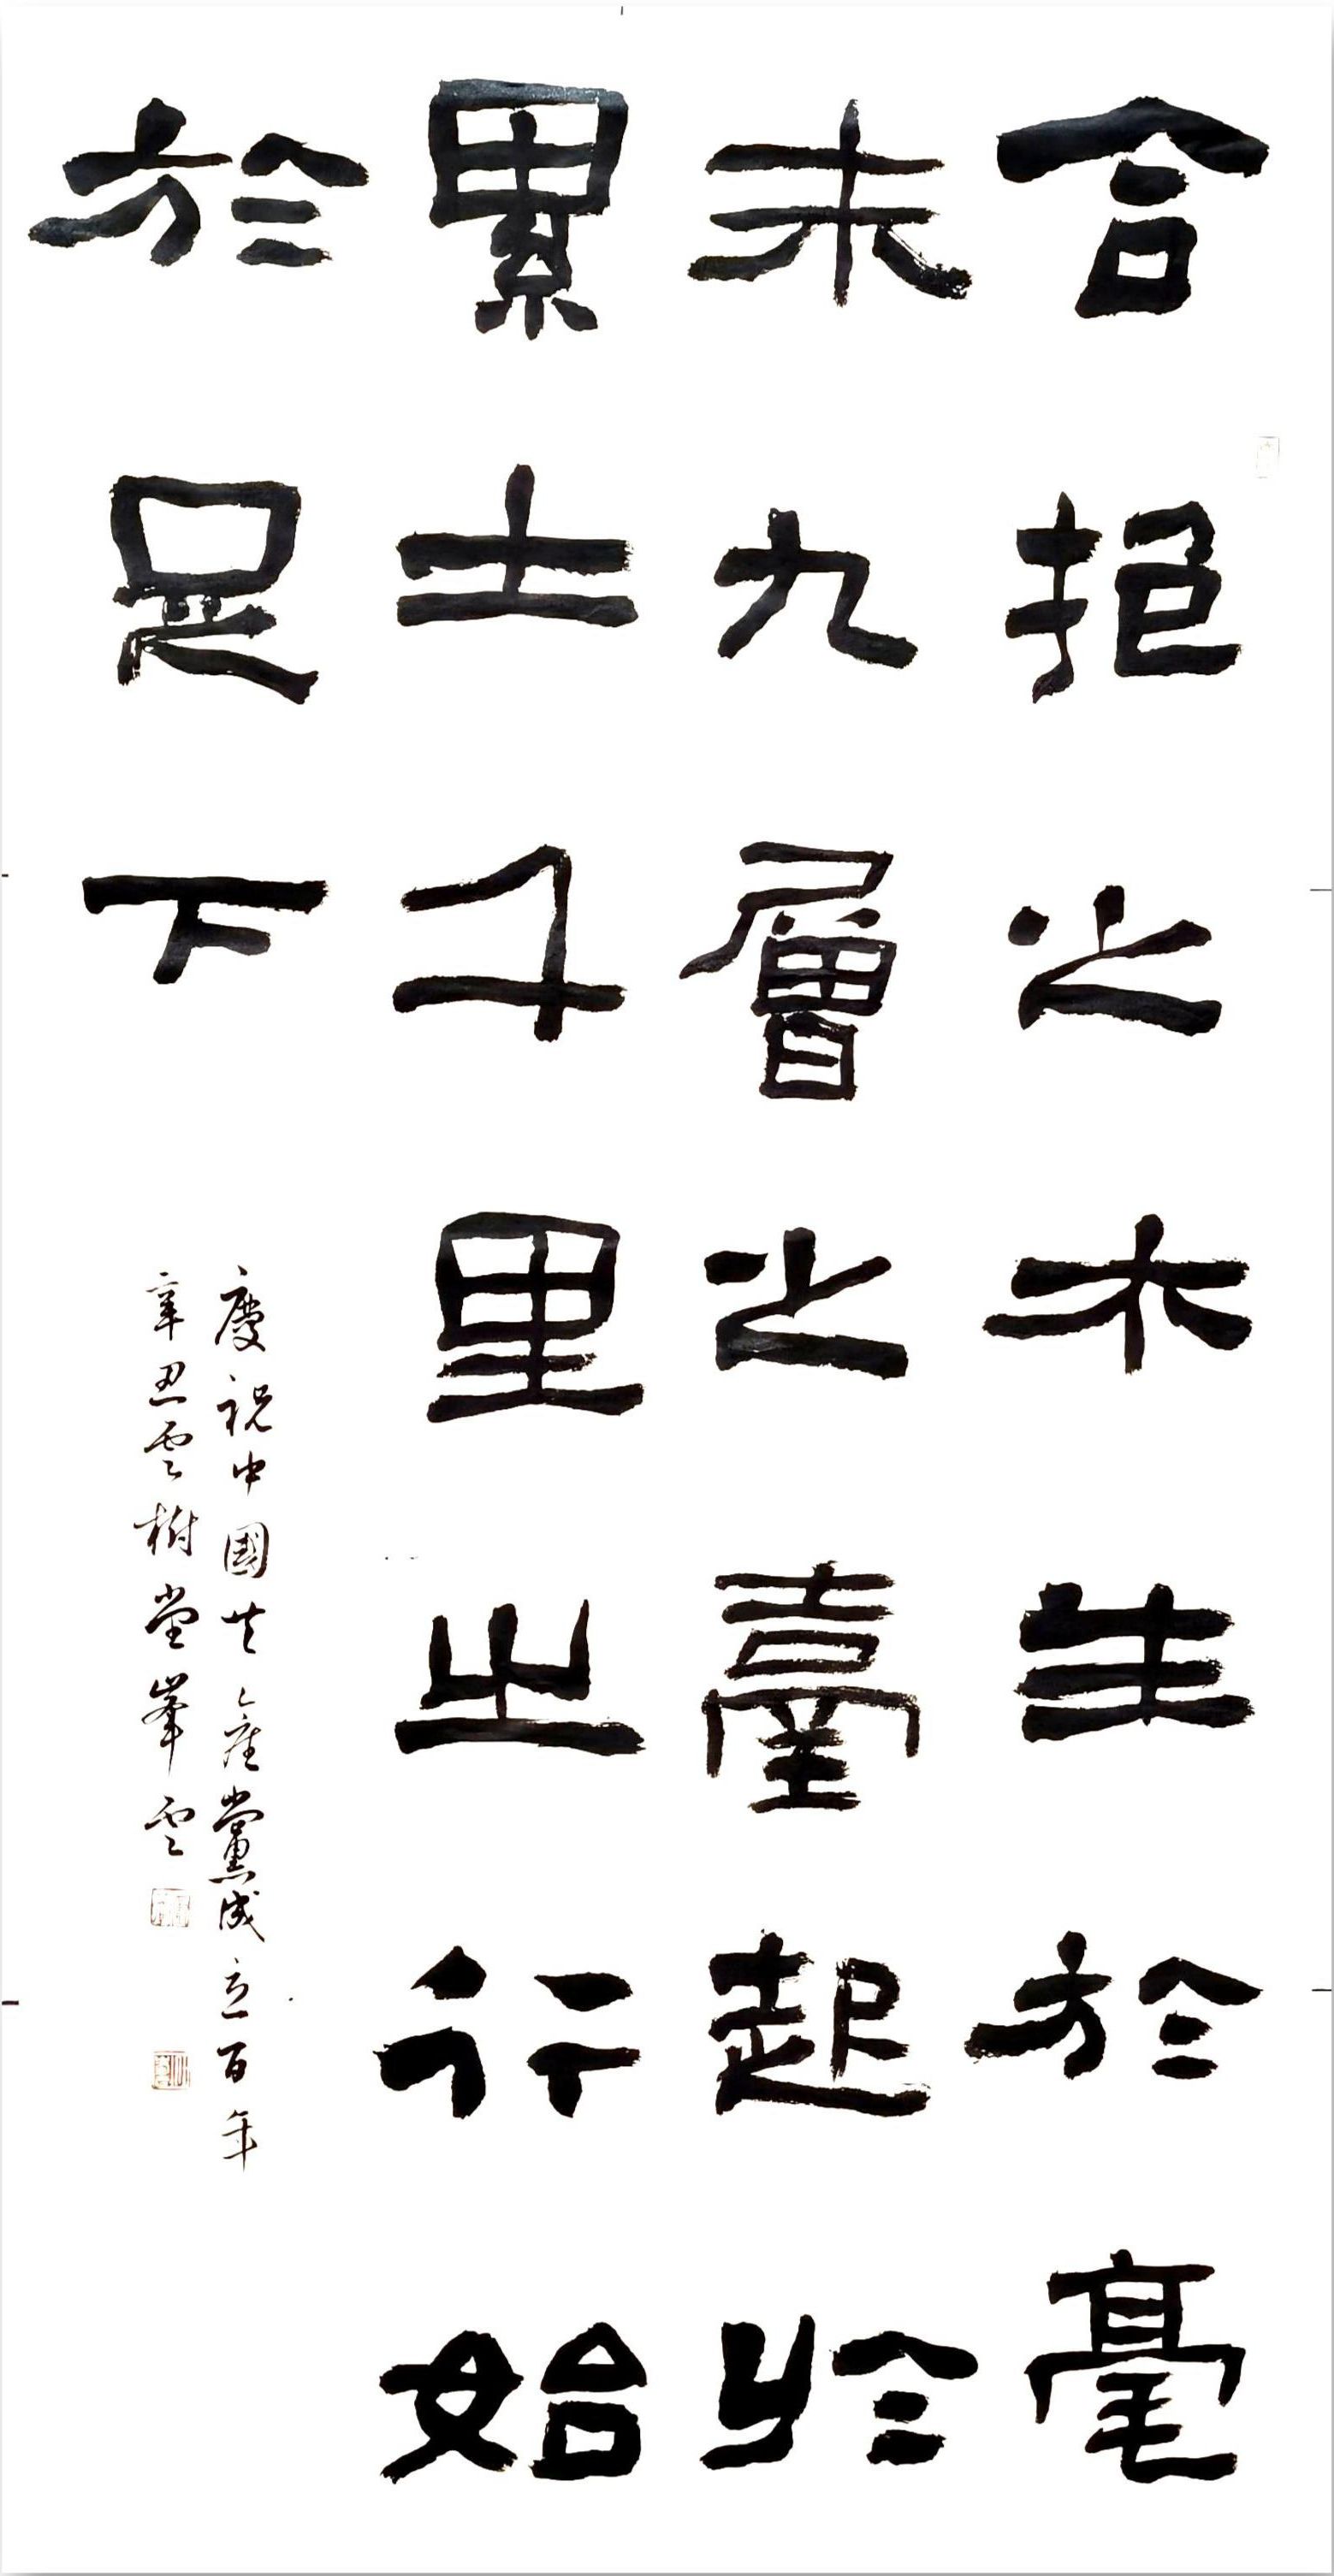 合抱之木生於毫
末九層之臺起於
累土千里之行始
於足下
慶祝中國共產黨成立百年
辛丑雲樹堂峯雲